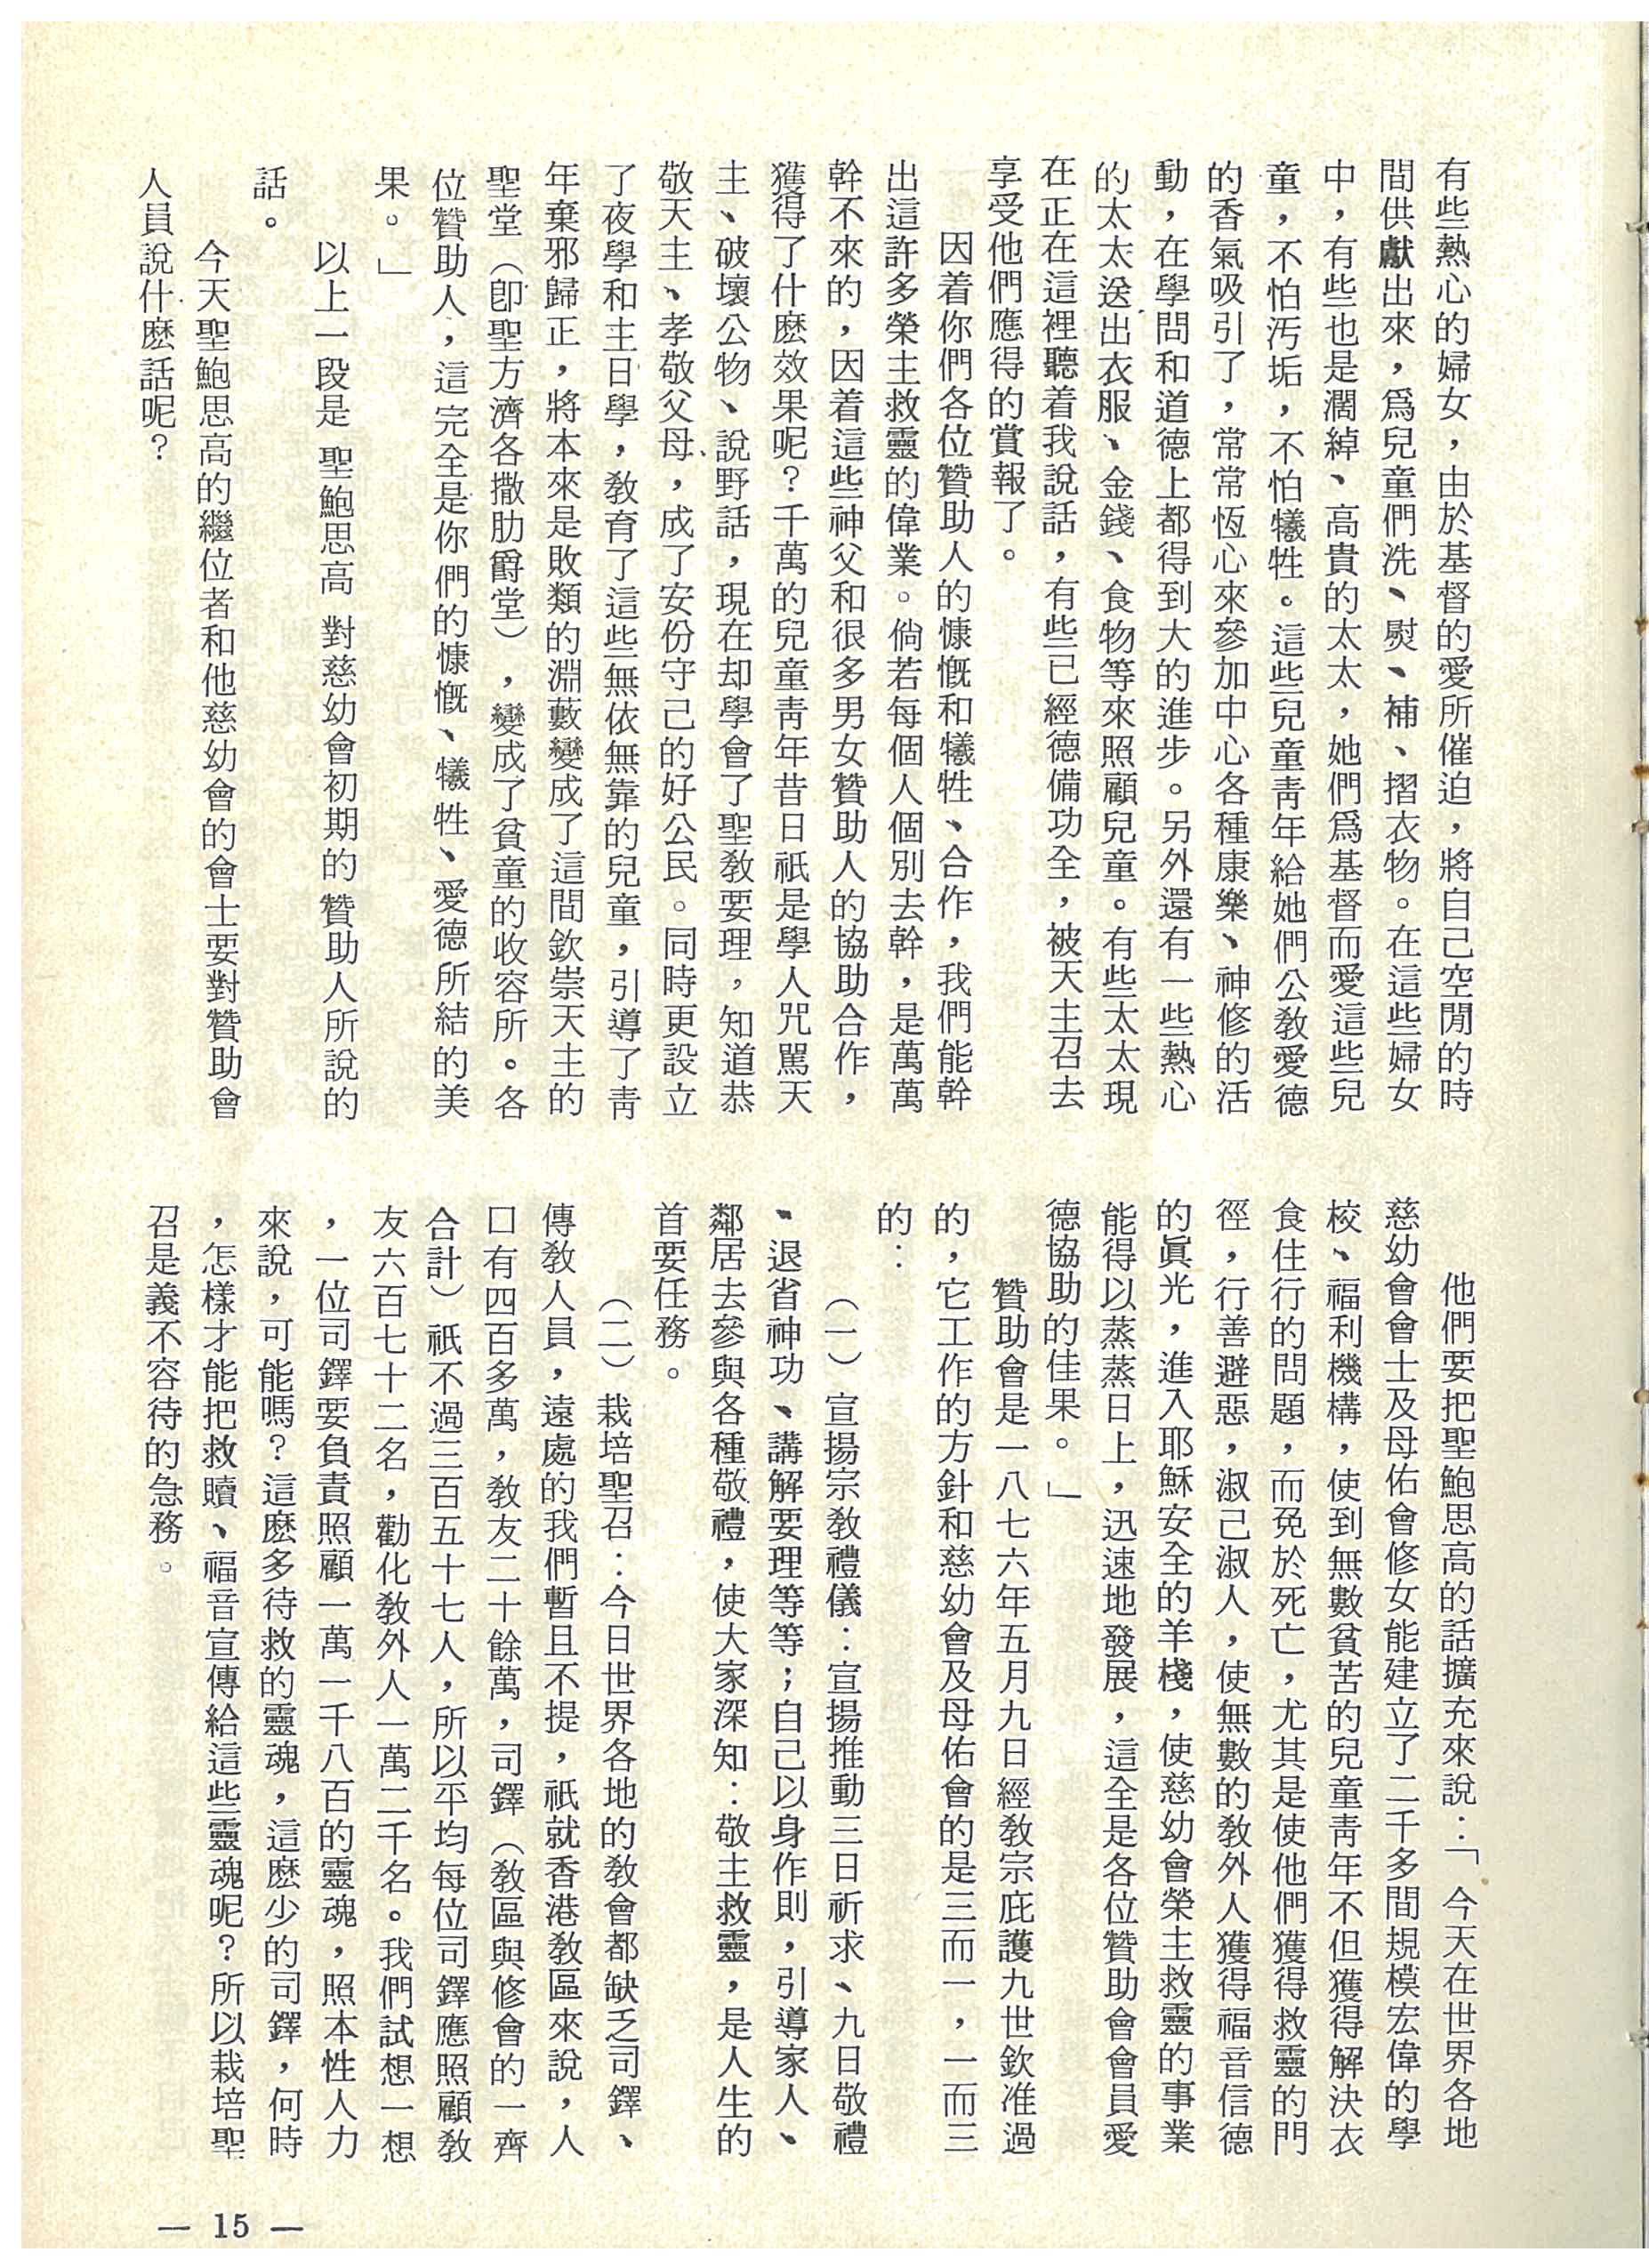 有些熱心的婦女，由於基督的愛所催迫，將自己空閒的時
間供獻出來，爲兒童們洗、熨、補、摺衣物。在這些婦女
中，有些也是濶綽、高貴的太太，她們爲基督而愛這些兒
童，不怕汚垢，不怕犧牲。這些兒童靑年給她們公敎愛德
的香氣吸引了，常常恆心來參加中心各種康樂、神修的活
動，在學問和道德上都得到大的進步。另外還有一些熱心
的太太送出衣服、金錢、食物等來照顧兒童。有些太太現
在正在這裡聽着我說話，有些已經德備功全，被天主召去
享受他們應得的賞報了。
因着你們各位贊助人的慷慨和犧牲、合作，我們能幹
出這許多榮主救靈的偉業。倘若每個人個別去幹，是萬萬
幹不來的，因着這些神父和很多男女贊助人的協助合作，
獲得了什麽效果呢？千萬的兒童靑年昔日祇是學人咒駡天
主、破壞公物、說野話，現在却學會了聖敎要理，知道恭
敬天主、孝敬父母，成了安份守己的好公民。同時更設立
了夜學和主日學，敎育了這些無依無靠的兒童，引導了靑
年棄邪歸正，將本來是敗類的淵藪變成了這間欽崇天主的
聖堂（卽聖方濟各撒肋爵堂），變成了貧童的收容所。各
位贊助人，這完全是你們的慷慨、犧牲、愛德所結的美
果。」
以上一段是聖鮑思高對慈幼會初期的贊助人所說的
話。
今天聖鮑思高的繼位者和他慈幼會的會士要對贊助會
人員說什麽話呢？
他們要把聖鮑思高的話擴充來說：「今天在世界各地
慈幼會會士及母佑會修女能建立了二千多間規模宏偉的學
校、福利機構，使到無數貧苦的兒童靑年不但獲得解決衣
食住行的問題，而免於死亡，尤其是使他們獲得救靈的門
徑，行善避惡，淑己淑人，使無數的敎外人獲得福音信德
的眞光，進入耶穌安全的羊棧，使慈幼會榮主救靈的事業
能得以蒸蒸日上，迅速地發展，這全是各位贊助會會員愛
德協助的佳果。」
贊助會是一八七六年五月九日經敎宗庇護九世欽准過
的，它工作的方針和慈幼會及母佑會的是三而一，一而三
的：
（一）宣揚宗敎禮儀：宣揚推動三日祈求、九日敬禮
、退省神功、講解要理等等；自己以身作則，引導家人、
鄰居去參與各種敬禮，使大家深知：敬主救靈，是人生的
首要任務。
（二）栽培聖召：今日世界各地的敎會都缺乏司鐸、
傳敎人員，遠處的我們暫且不提，祇就香港敎區來說，人
口有四百多萬，敎友二十餘萬，司鐸（敎區與修會的一齊
合計）祇不過三百五十七人，所以平均每位司鐸應照顧敎
友六百七十二名，勸化敎外人一萬二千名。我們試想一想
，一位司鐸要負責照顧一萬一千八百的靈魂，照本性人力
來說，可能嗎？這麽多待救的靈魂，這麽少的司鐸，何時
，怎樣才能把救贖、福音宣傳給這些靈魂呢？所以栽培聖
召是義不容待的急務。
— 15 —